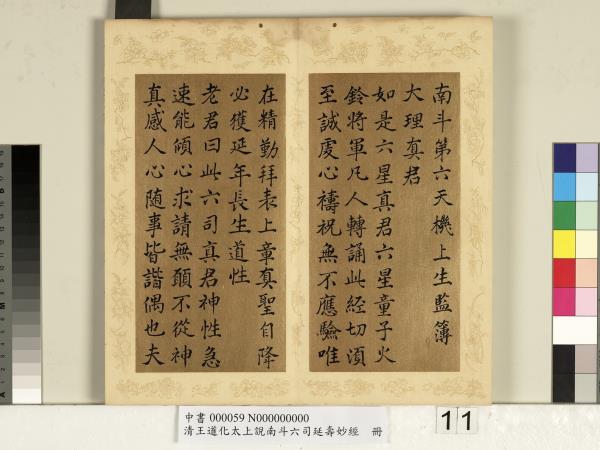 南斗第六天機上生監簿
大理真君
如是六星真君六星童子火
鈴將軍凡人轉誦此經切須
至誠虔心禱祝無不應驗唯
在精勤拜表上童真聖自降
必獲延年長生道性
老君曰此六司真君神性急
速能傾心求請無願不從神
真感人心随事皆諧偶也夫
中書 000059 N000000000
清王道化太上說南斗六司延壽妙經 冊
11